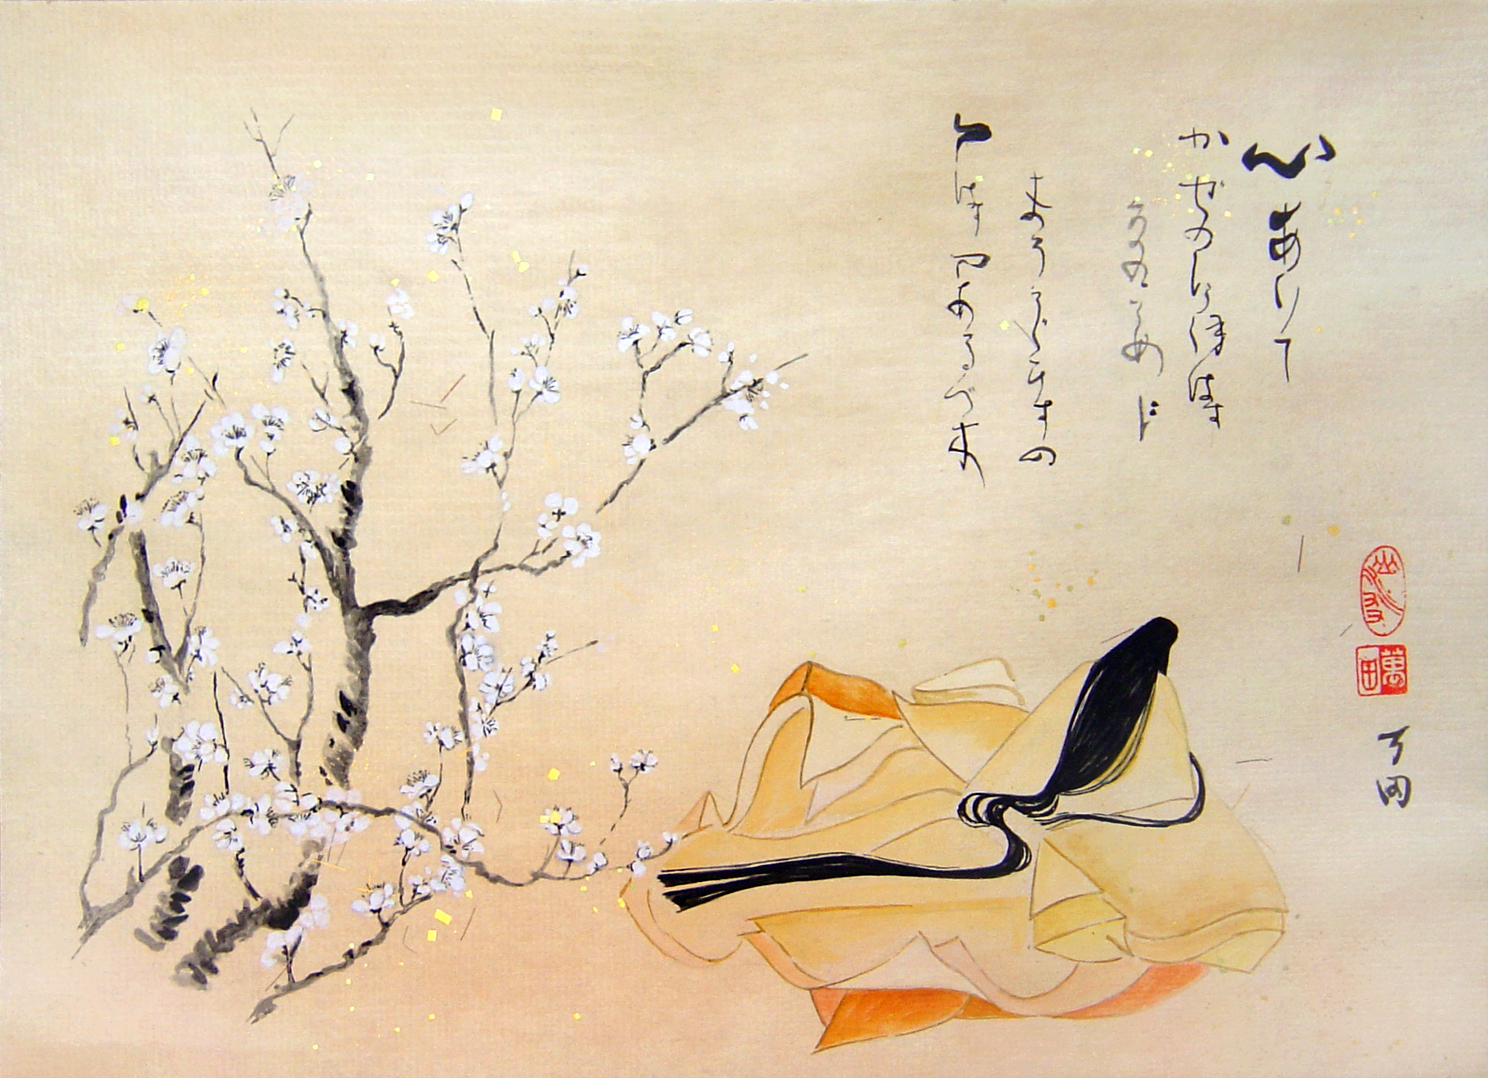 心ありて
かぜのにほはす
そののうめに
まつうぐひすの
とはずやあるべき
萬田